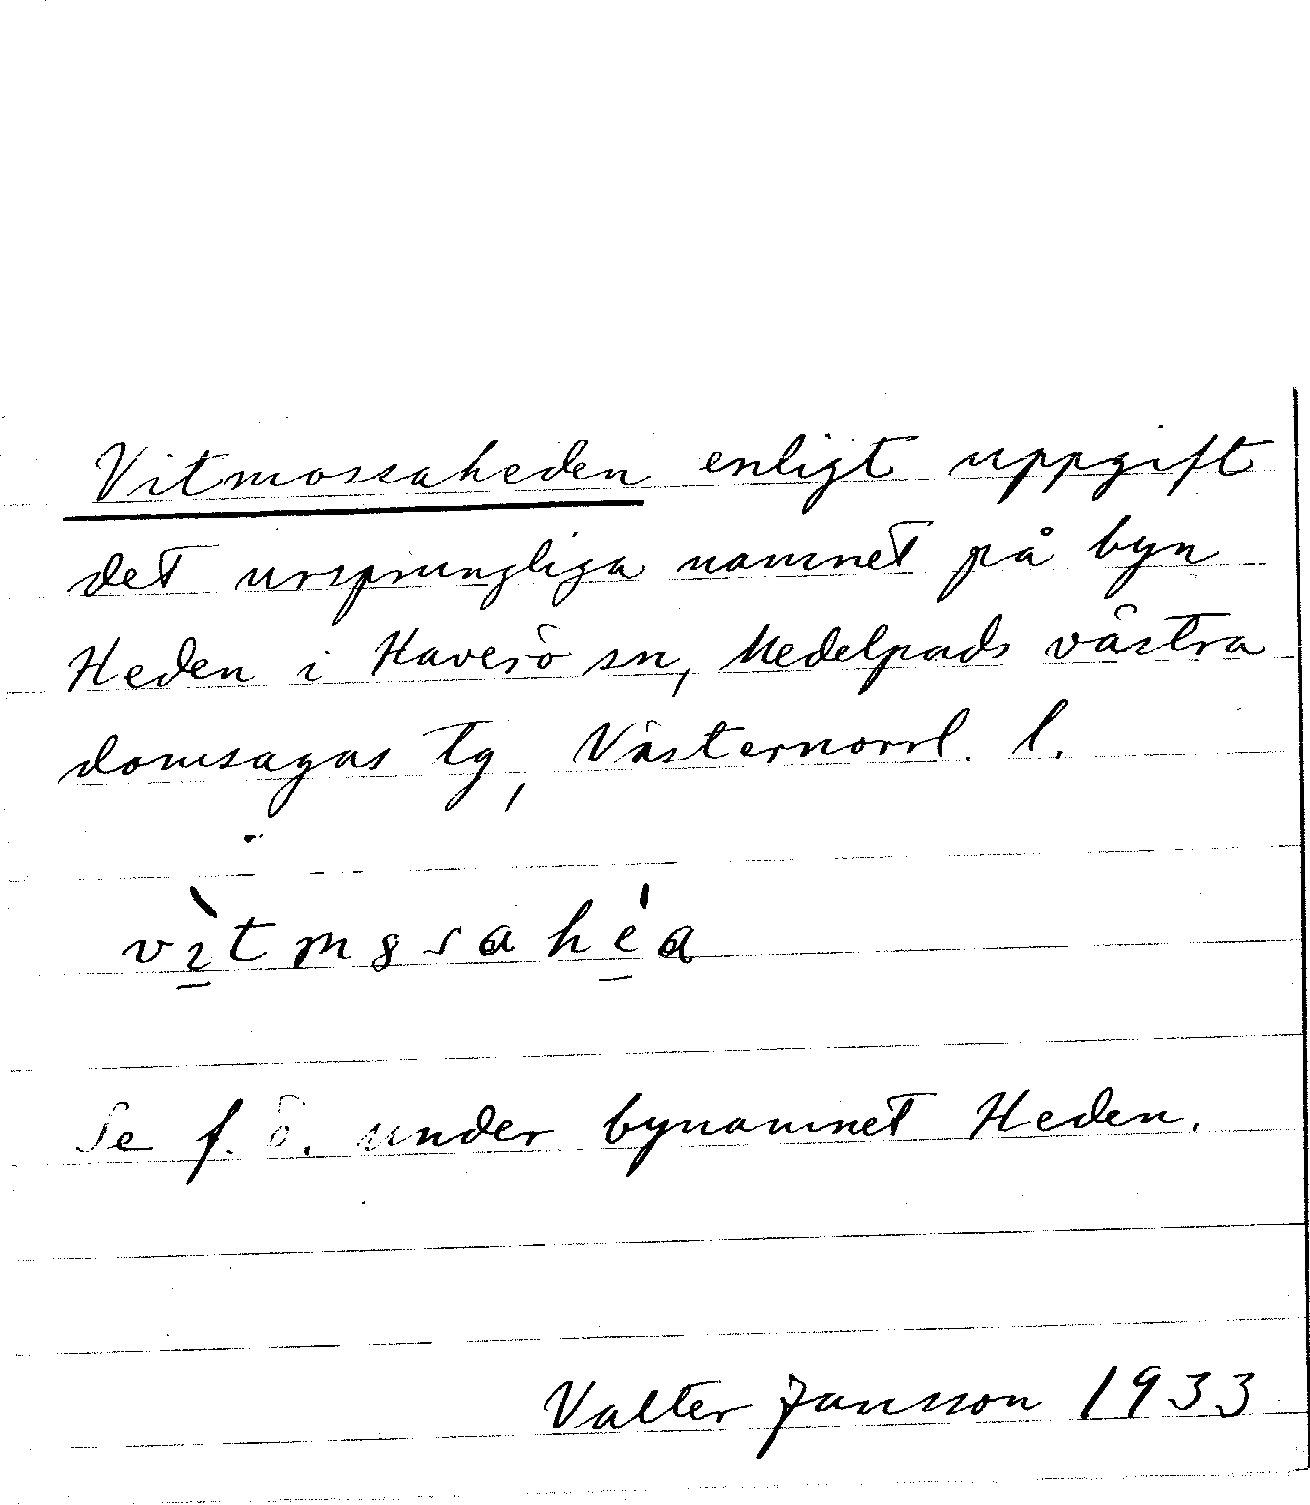 Vitmossaheden enligt uppgift
det ursprungliga namnet på byn
Heden i Haverö sn, Medelpads västra
domsagas tg, Västernorrl. l.
Se f. ö. under bynamnet Heden.
Valter Jansson 1933